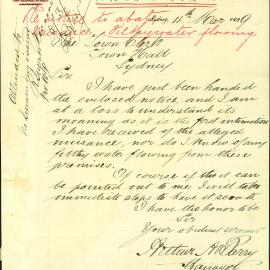 4th Nov 1889
nuisance, Filthy water flowing
The Town Clerk
Town Hall
Sydney
Sir
I have just been handed
the enclosed notice, and I am
at a loss to understand its
meaning as it is the first intimation
I have received of the alleged
nuisance, nor do I know of any
filthy water flowing from these
premises.
Of course if this it can
be pointed out to me I will take
immediate steps to have it seen to
I have the honor to be
Sir
Your obedient servant
Arthur H Perry
Manager